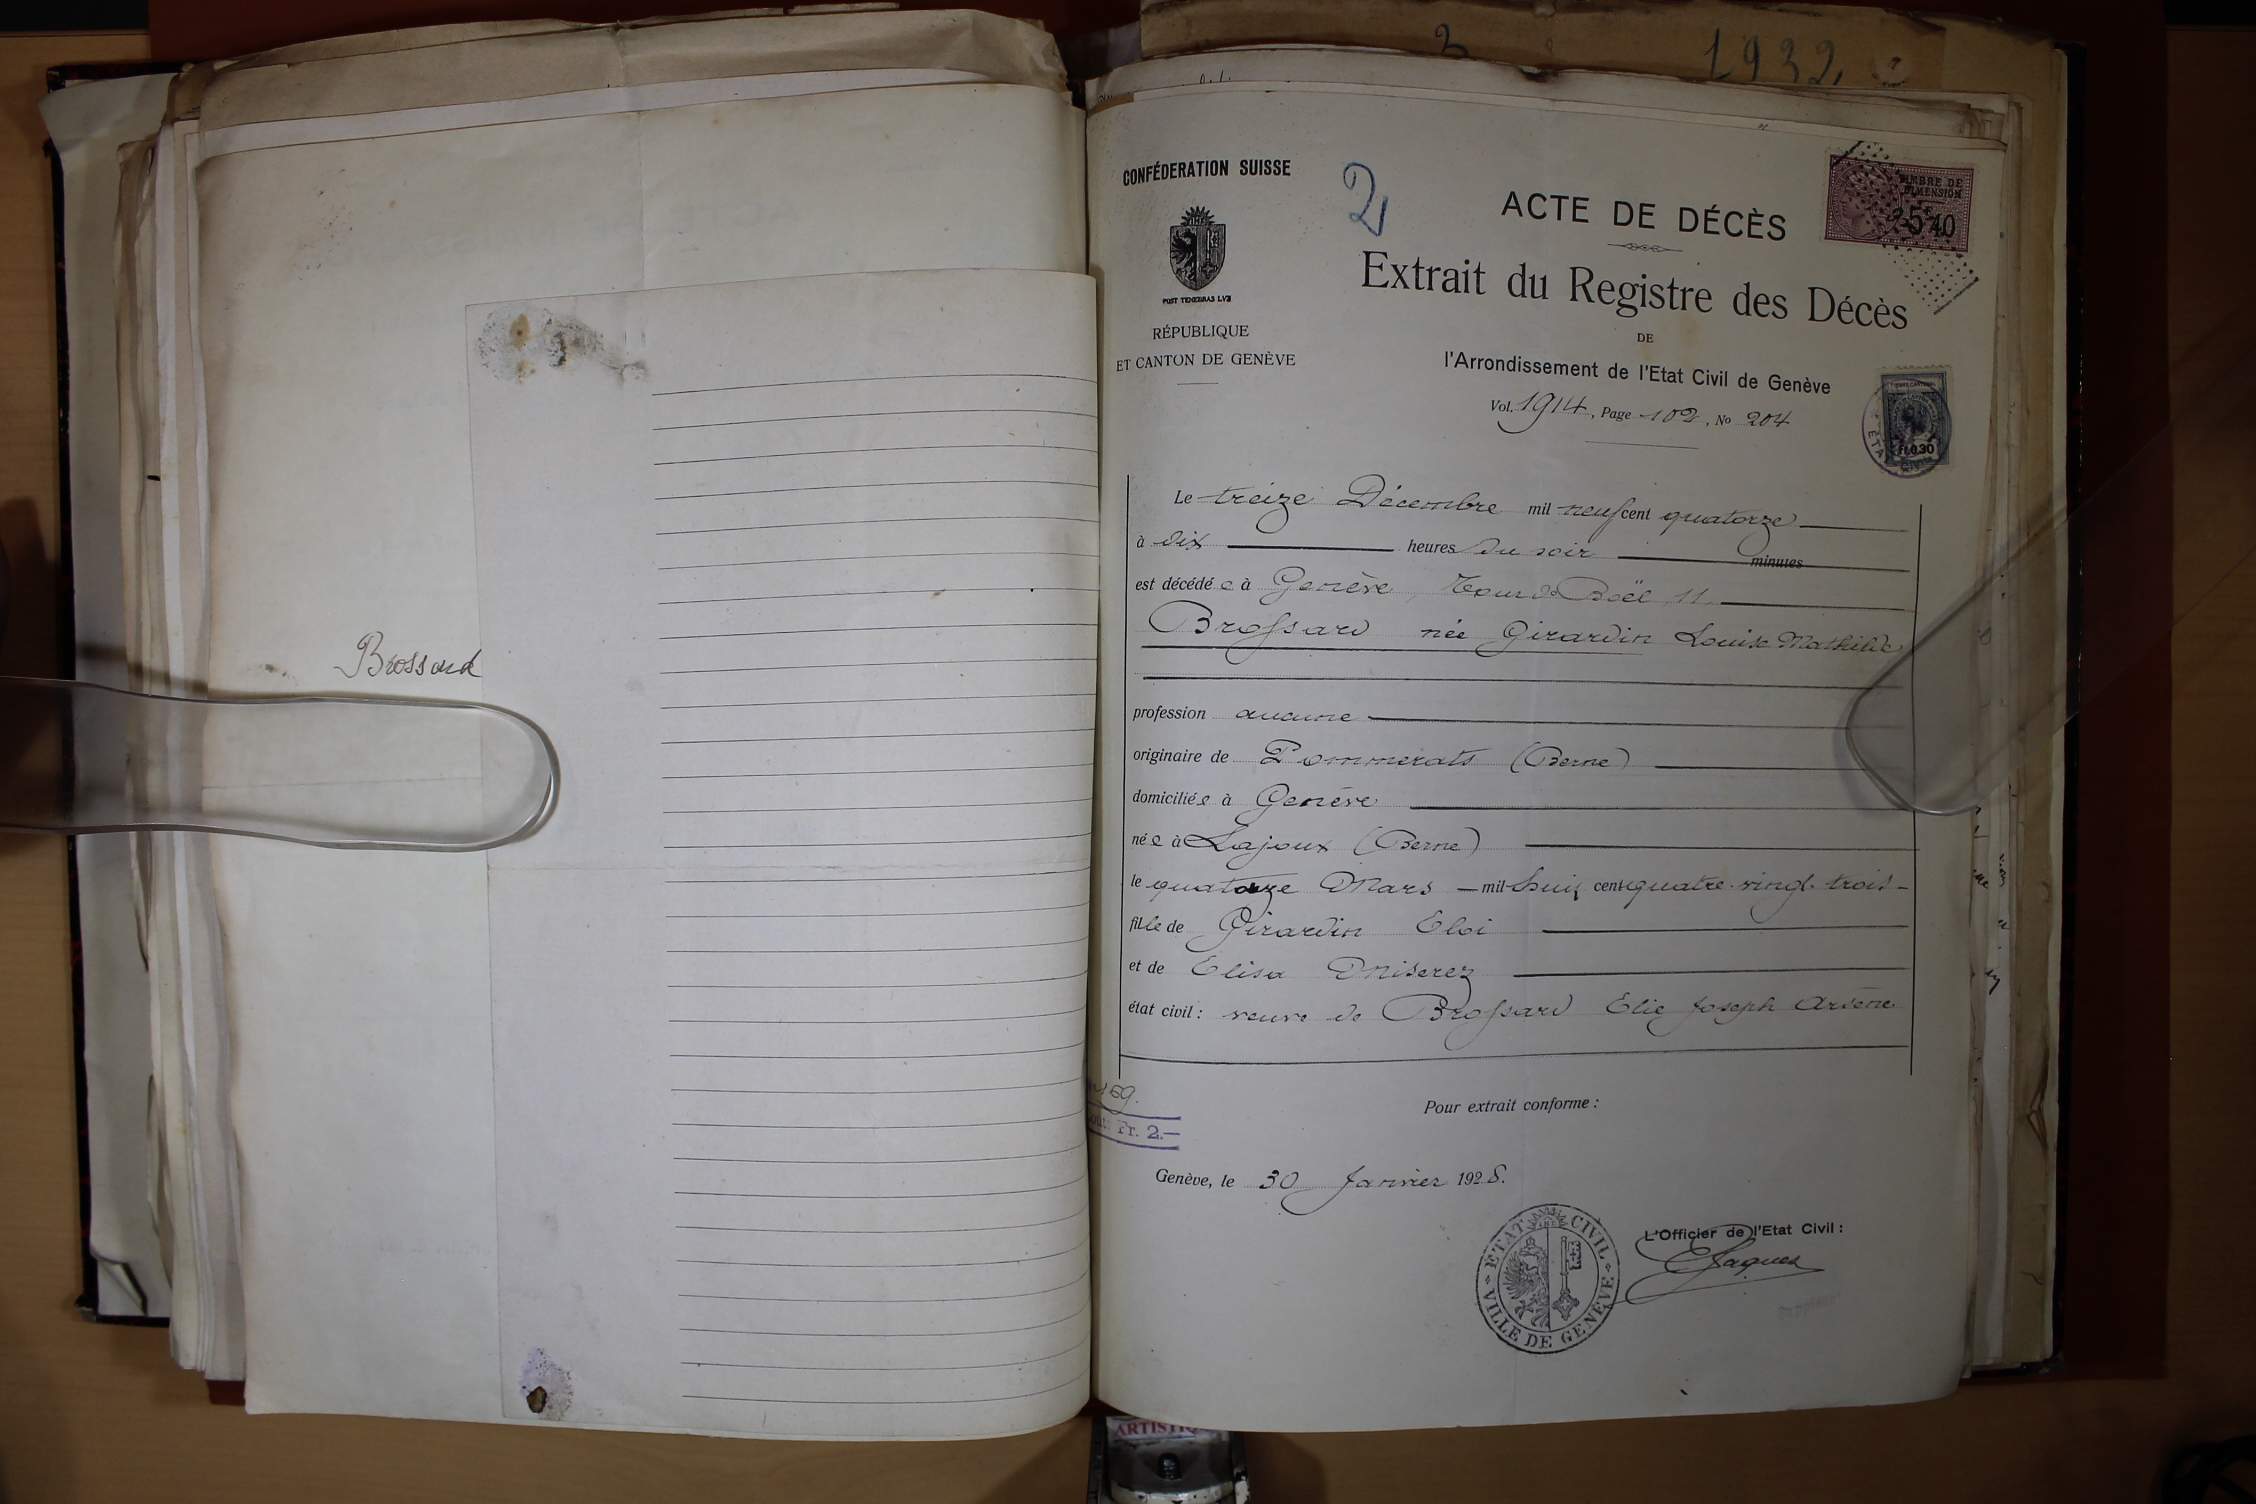 1932
Brossard
CONFÉDERATION SUISSE
POST TENEBRAS LVX
RÉPUBLIQUE
ET CANTON DE GENÈVE
2
ACTE DE DÉCÈS
TIMBRE DE
DIMENSION
5f40
Extrait du Registre des Décès
DE
l'Arrondissement de l'Etat Civil de Genève
Vol. 1914, Page 102, No 204
ÉTAT CIVIL
fr.0.30
Le treize Décembre mil neuf cent quatorze
à dix heures du soir minutes
est décédée à Genève, Tour de Boël 11
Brossard née Girardin Louise Mathilde
profession aucune
originaire de Pommerats (Berne)
domiciliée à Genève
née à Lajoux (Berne)
le quatorze Mars mil huit cent quatre-vingt-trois
fille de Girardin Eloi
et de Elisa Miserez
état civil : veuve de Brossard Elie Joseph Arsène
Pour extrait conforme :
Fr. 2.—
Genève, le 30 Janvier 1928.
ETAT CIVIL
VILLE DE GENÈVE
L'Officier de l'Etat Civil :
E Jaques
ARTISTIQ